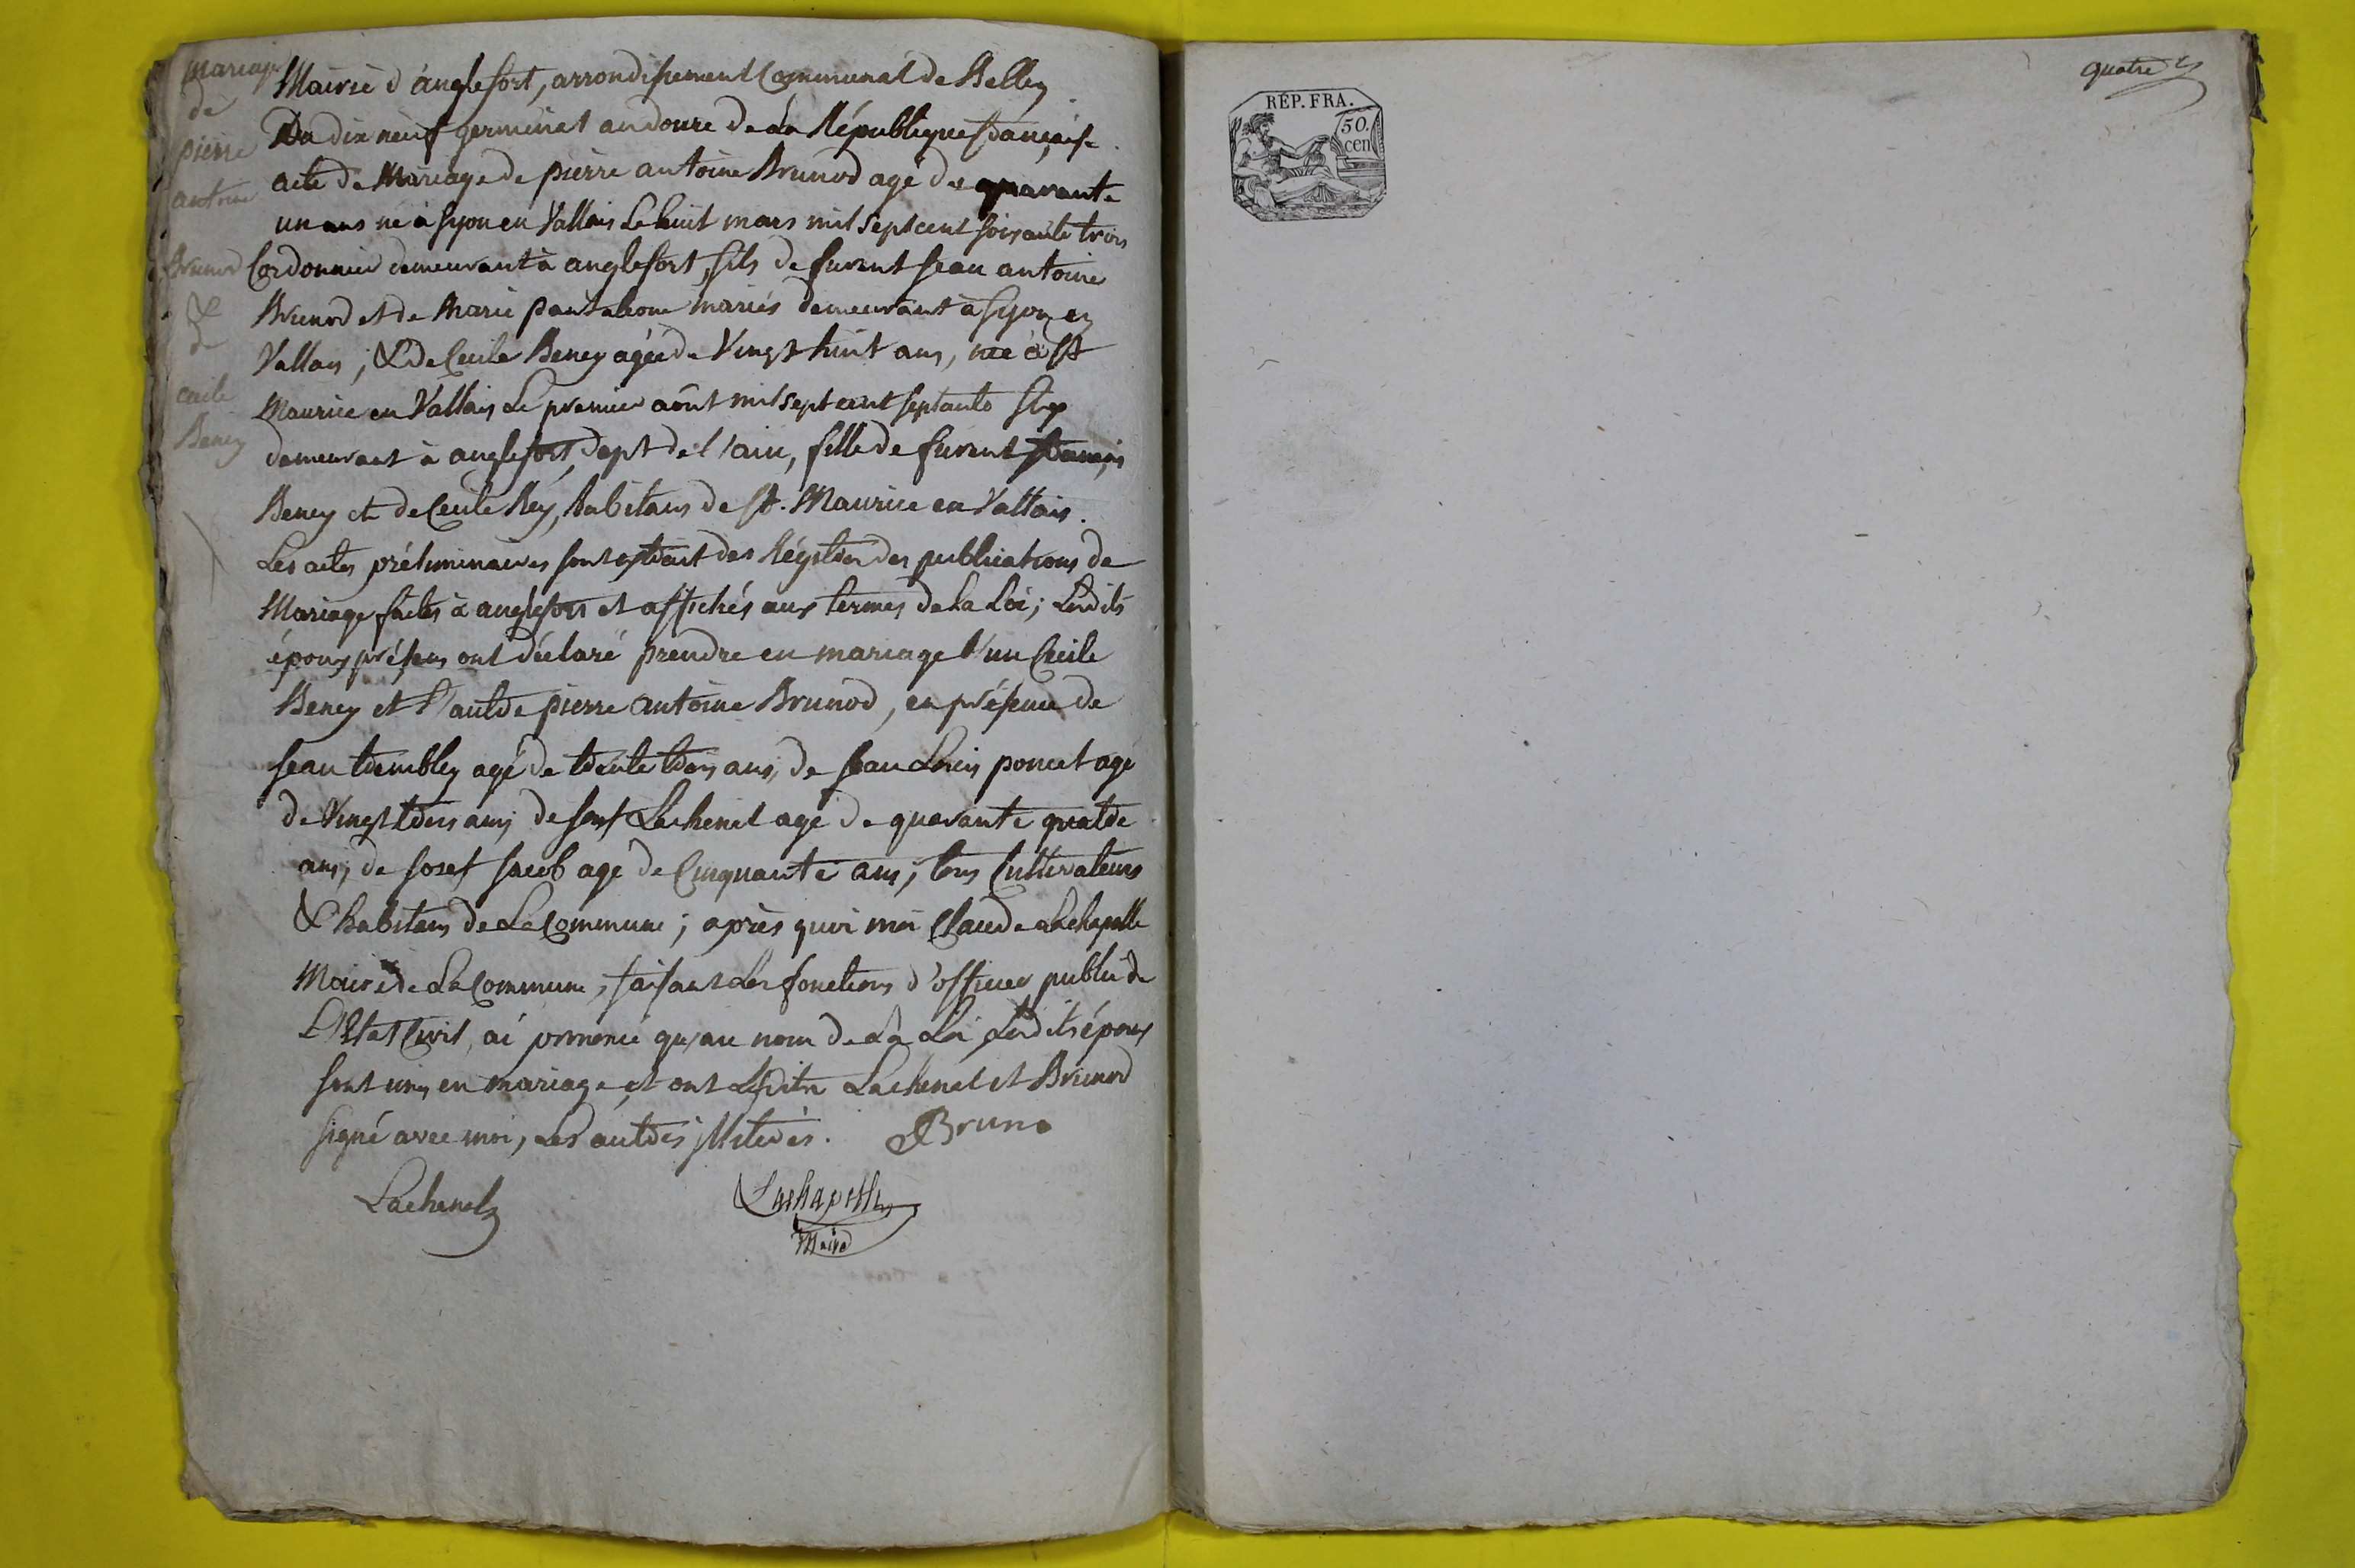 Mariage
de
pierre
antoine
Brunod
&
de
cecile
Beney
Mairie d'anglefort, arrondissement Communal de Belley
Du dix neuf germinal an douze de La République française.
acte de Mariage de pierre antoine Brunod agé de quarante
un ans né à Syon en Vallais Le huit mars mil sept cent soixante trois
Cordonnier demeurant à anglefort, fils de furent Jean antoine
Brunod et de Marie pantaleone mariés demeurant à Syon en
Vallais ; & de Cecile Beney agée de Vingt huit ans, née à St
Maurice en Vallais Le premier août mil sept cent septante
demeurant à anglefort, dept de l'ain, fille de furent françois
Beney et de Cecile Rey, habitans de St. Maurice en Vallais.
Les actes préliminaires sont extrait des Régistre des publications de
Mariage faites à anglefort et affichés aux termes de la Loi ; Lesdits
époux présens ont déclaré prendre en mariage l'un Cecile
Beney et l'autre pierre antoine Brunod, en présence de
Jean trembley agé de trente trois ans, de Jean Louis poncet agé
de Vingt trois ans, de Josef Lachenal agé de quarante quatre
ans, de Josef Jacob agé de Cinquante ans ; tous Cultivateurs
& habitans de La Commune ; après quoi moi Claude Lachapelle
Maire de La Commune, faisant Les fonctions d'officier public de
L'Etat Civil, ai prononcé qu'au nom de La Loi Lesdits époux
sont unis en mariage et ont Lesdits Lachenal et Brunod
signé avec moi, Les autres illiterés. Bruno
Lachenal
Lachapelle
Maire
quatre
RÉP. FRA.
50.
cen